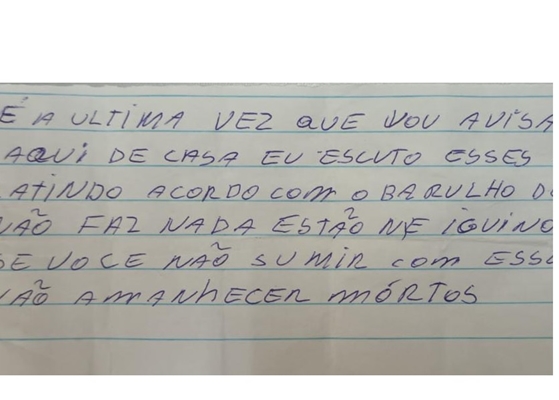 É A ULTIMA VEZ QUE VOU AVISA
AQUI DE CASA EU ESCUTO ESSES
LATINDO ACORDO COM O BARULHO D
NÃO FAZ NADA ESTÃO ME IGUINO
SE VOCE NÃO SUMIR COM ESS
VÃO AMANHECER MÓRTOS